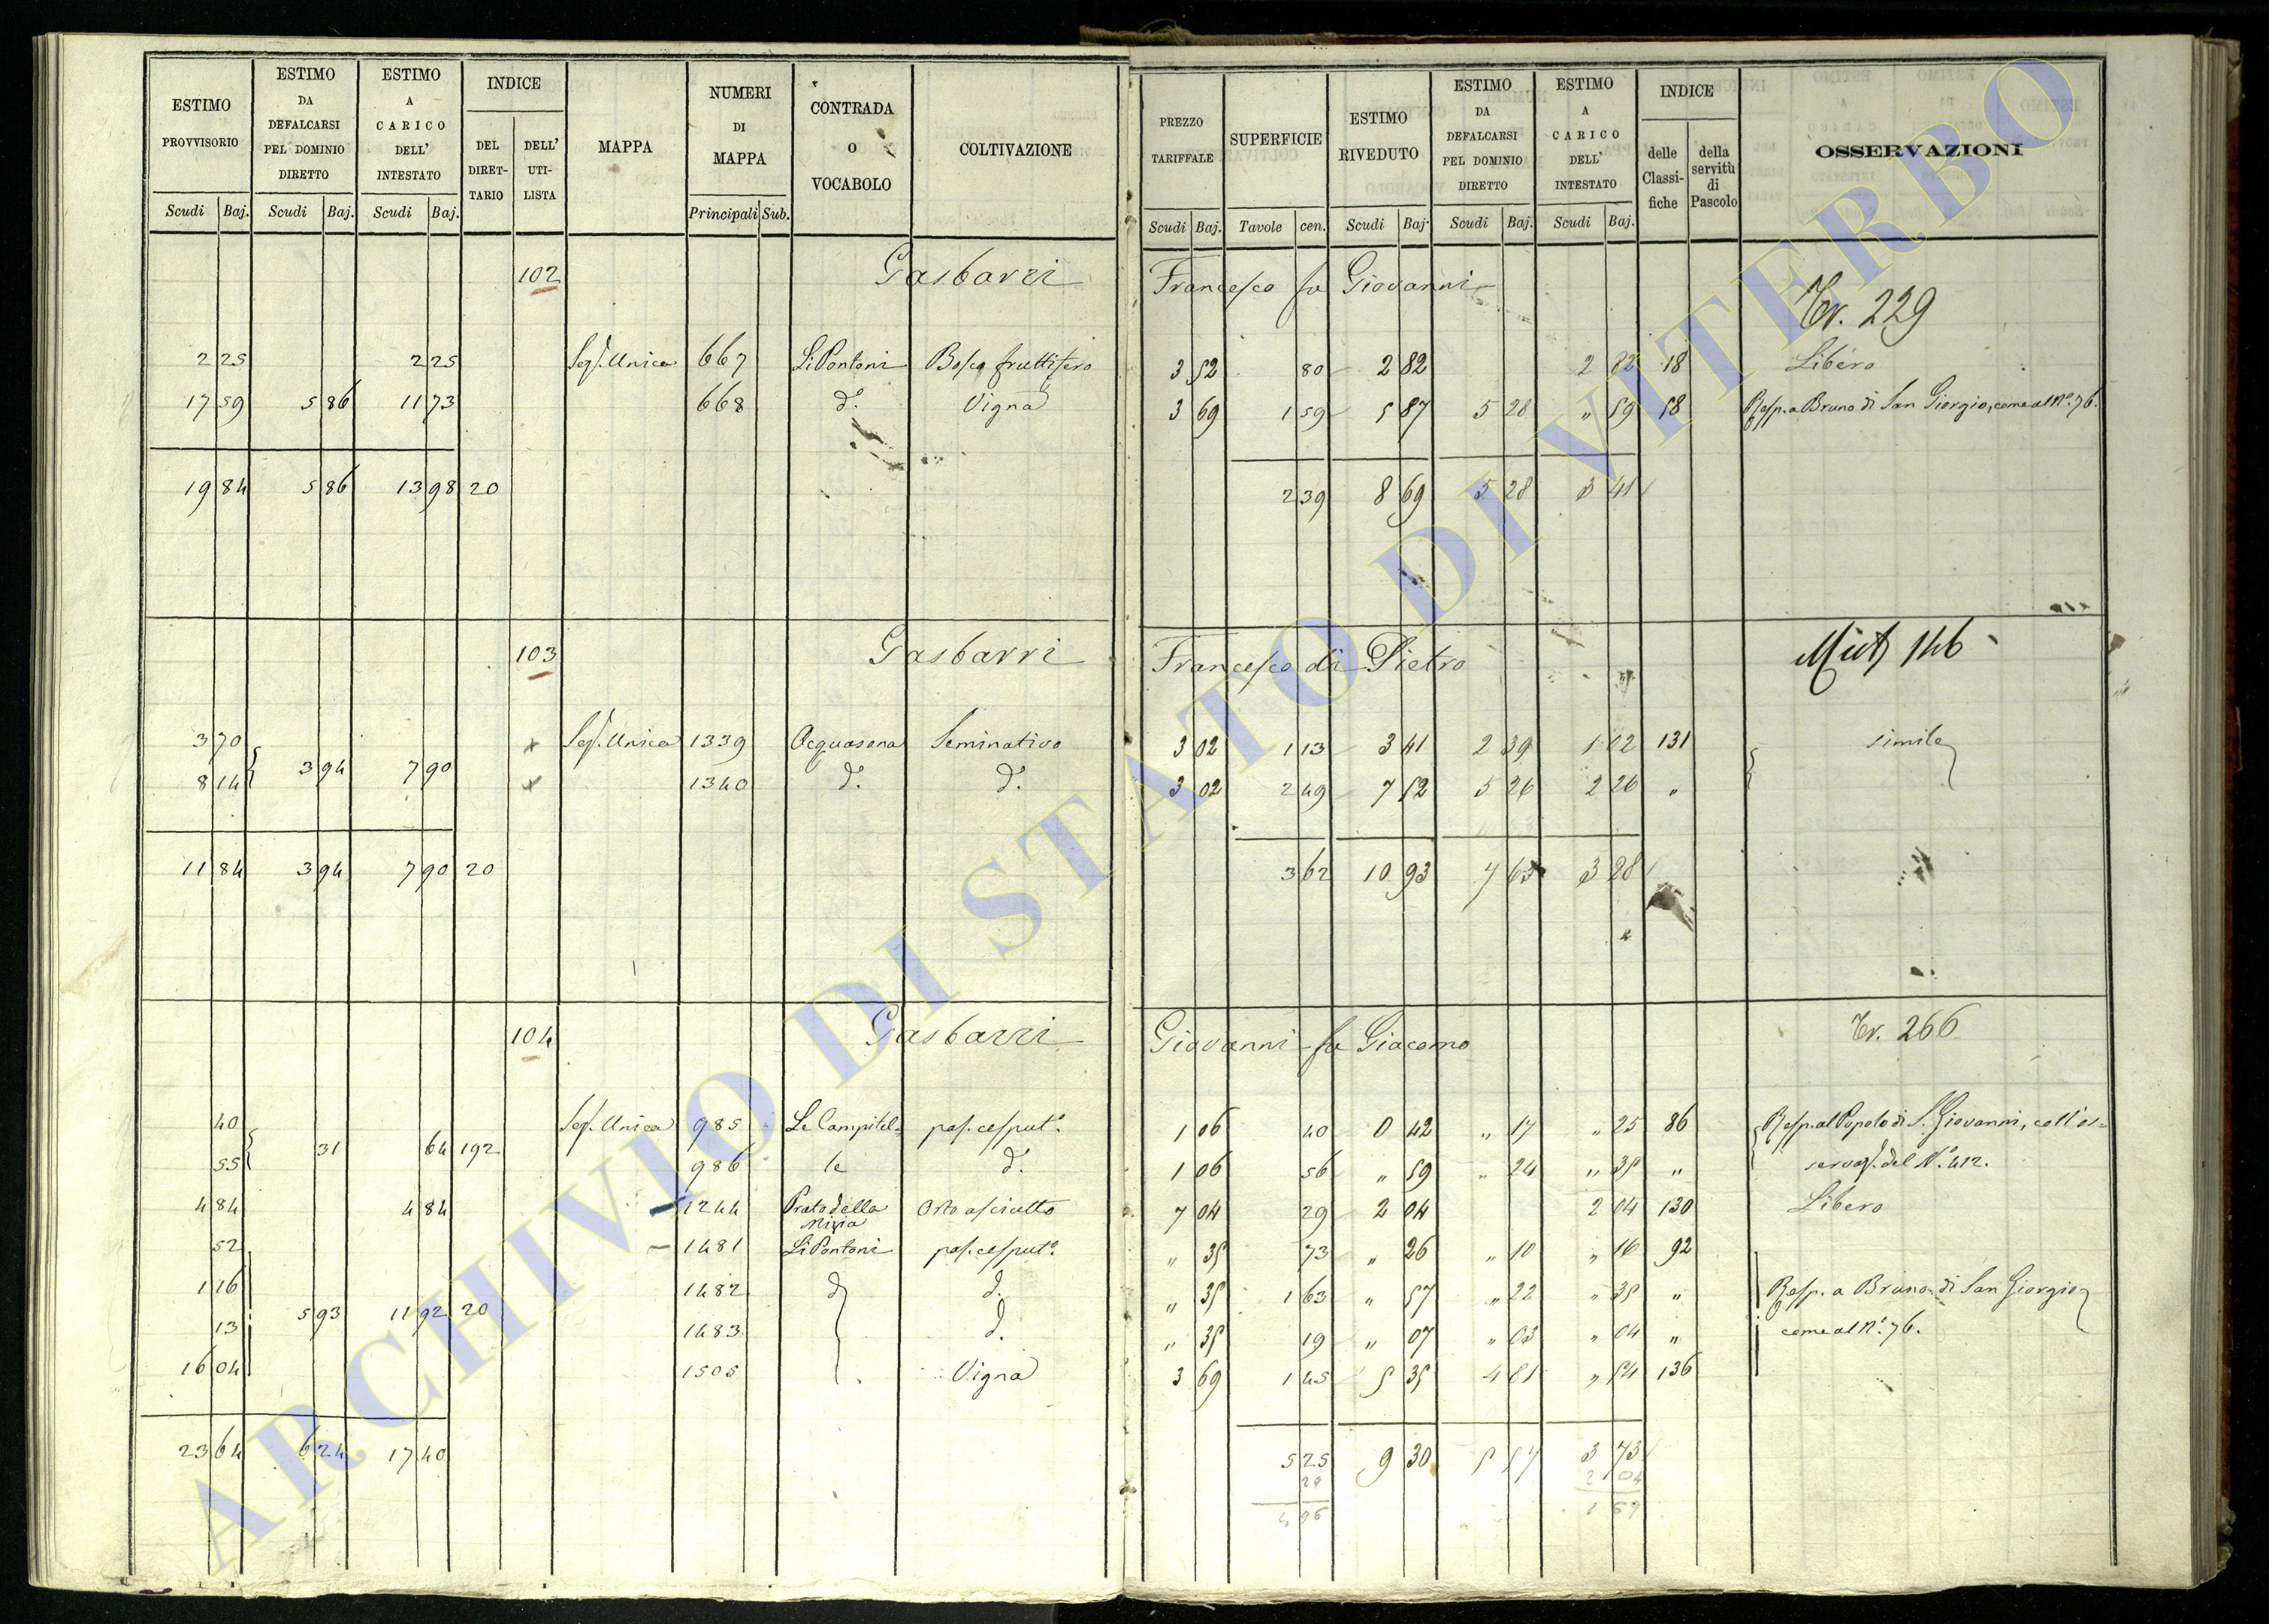 ESTIMO PROVVISORIO Scudi Baj.
ESTIMO DA DEFALCARSI PEL DOMINIO DIRETTO Scudi Baj.
ESTIMO A CARICO DELL' INTESTATO Scudi Baj.
INDICE DEL DIRET- TARIO DELL' UTI- LISTA
MAPPA
NUMERI DI MAPPA Principali Sub.
CONTRADA O VOCABOLO
COLTIVAZIONE
PREZZO TARIFFALE Scudi Baj.
SUPERFICIE Tavole cen.
ESTIMO RIVEDUTO Scudi Baj.
ESTIMO DA DEFALCARSI PEL DOMINIO DIRETTO Scudi Baj.
ESTIMO A CARICO DELL' INTESTATO Scudi Baj.
INDICE delle Classi- fiche della servitù di Pascolo
OSSERVAZIONI
102 Gasbarri Francesco fu Giovanni
Tr. 229
2 25 2 25 Sez. Unica 667 Li Pontoni Bosco fruttifero 3 52 80 2 82 2 82 18 Libero
17 59 5 86 11 73 668 d.º Vigna 3 69 1 59 5 87 5 28 " 59 58 Resp. a Bruno di San Giorgio, come al Nº. 76.
19 84 5 86 13 98 20 2 39 8 69 5 28 3 41
103 Gasbarri Francesco di Pietro
146
3 70 Sez. Unica 1339 Acquasona Seminativo 3 02 1 13 3 41 2 39 1 02 131 simile
3 94 7 90
8 14 1340 d.º d.º 3 02 2 49 7 52 5 26 2 26 "
11 84 3 94 7 90 20 3 62 10 93 7 65 3 28
104 Gasbarri Giovanni fu Giacomo
Tr. 266
40 Sez. Unica 985 Le Campitel= pas. cesput.º 1 06 40 0 42 " 17 " 25 86 Resp. al Popolo di S. Giovanni, coll'os=
31 64 192
55 986 le d.º 1 06 56 " 59 " 24 " 35 " servaz. del Nº. 412.
4 84 4 84 1244 Prato della Orto asciutto 7 04 29 2 04 2 04 130 Libero
52 1481 Li Pontoni pas. cesput.º " 35 73 " 26 " 10 " 16 92
1 16 1482 d. d. " 35 1 63 " 57 " 22 " 35 " Resp. a Bruno di San Giorgio
5 93 11 92 20
13 1483 d. " 35 19 " 07 " 03 " 04 " come al Nº. 76.
16 04 1505 Vigna 3 69 1 45 5 35 4 81 " 54 136
23 64 6 24 17 40 5 25 9 30 5 57 3 73
29 2 04
4 96 1 69
ARCHIVIO DI STATO DI VITERBO